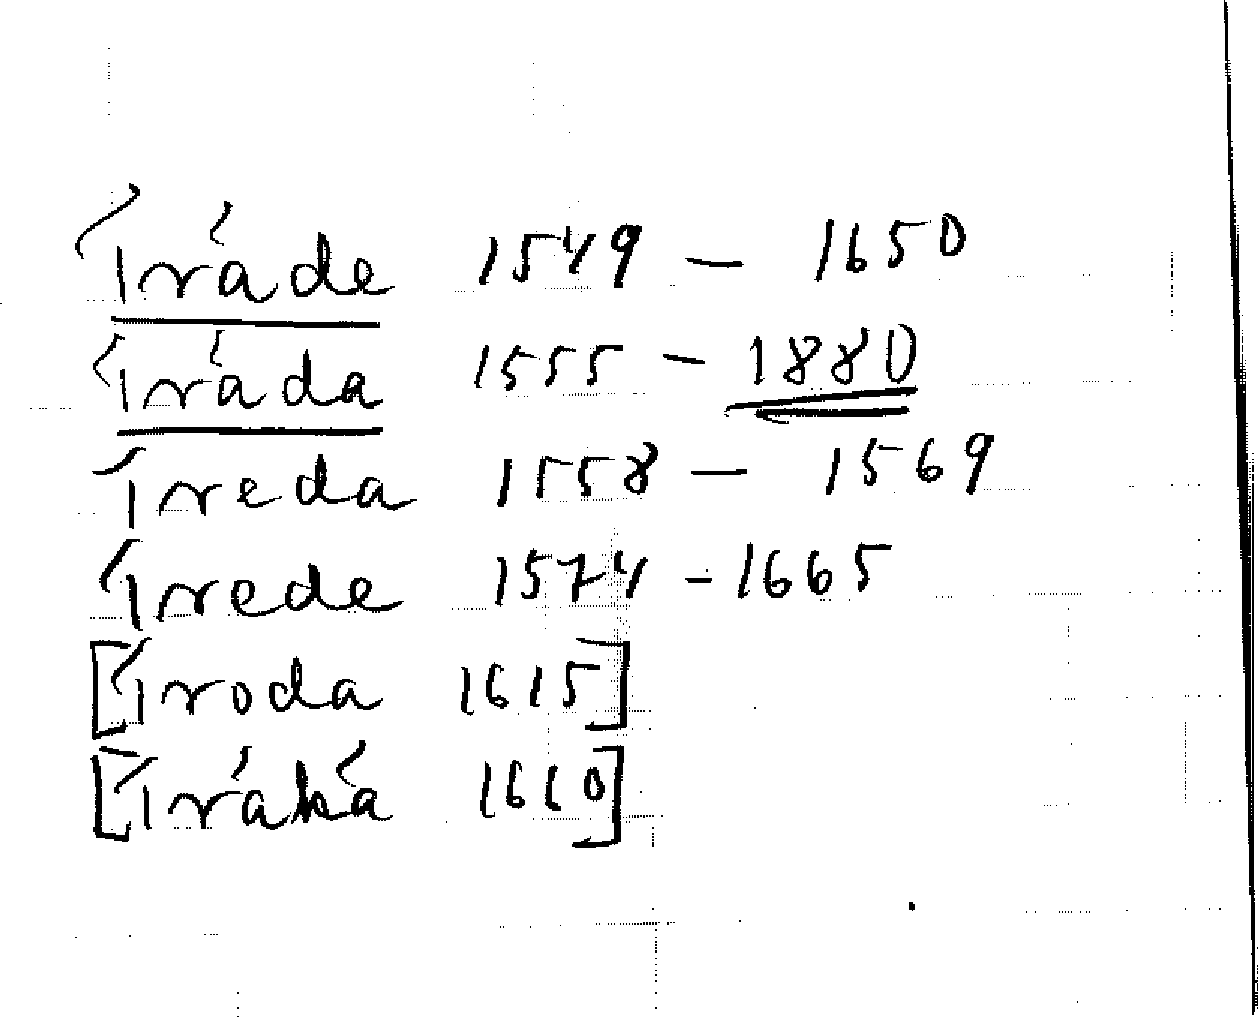 Tráde 1549 – 1650
Tráda 1555 – 1880
Treda 1558 – 1569
Trede 1574 – 1665
[Troda 1615]
[Tráká 1610]